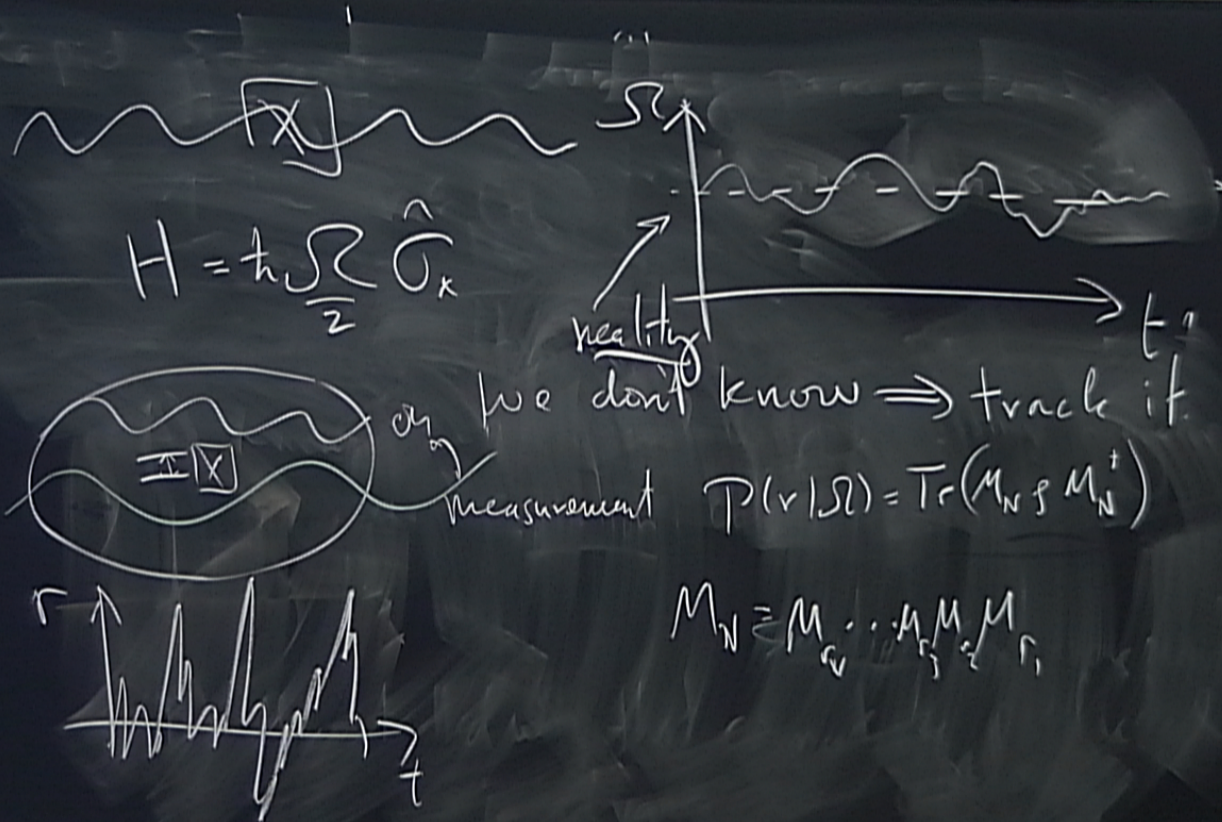 X
Ω
H = ħ Ω/2 σ̂ₓ
reality
t
we don't know ⟹ track it.
X
measurement P(r|Ω) = Tr(M_N ρ M_N†)
r
M_N ≡ M_{r_N} ... M_{r_3} M_{r_2} M_{r_1}
t